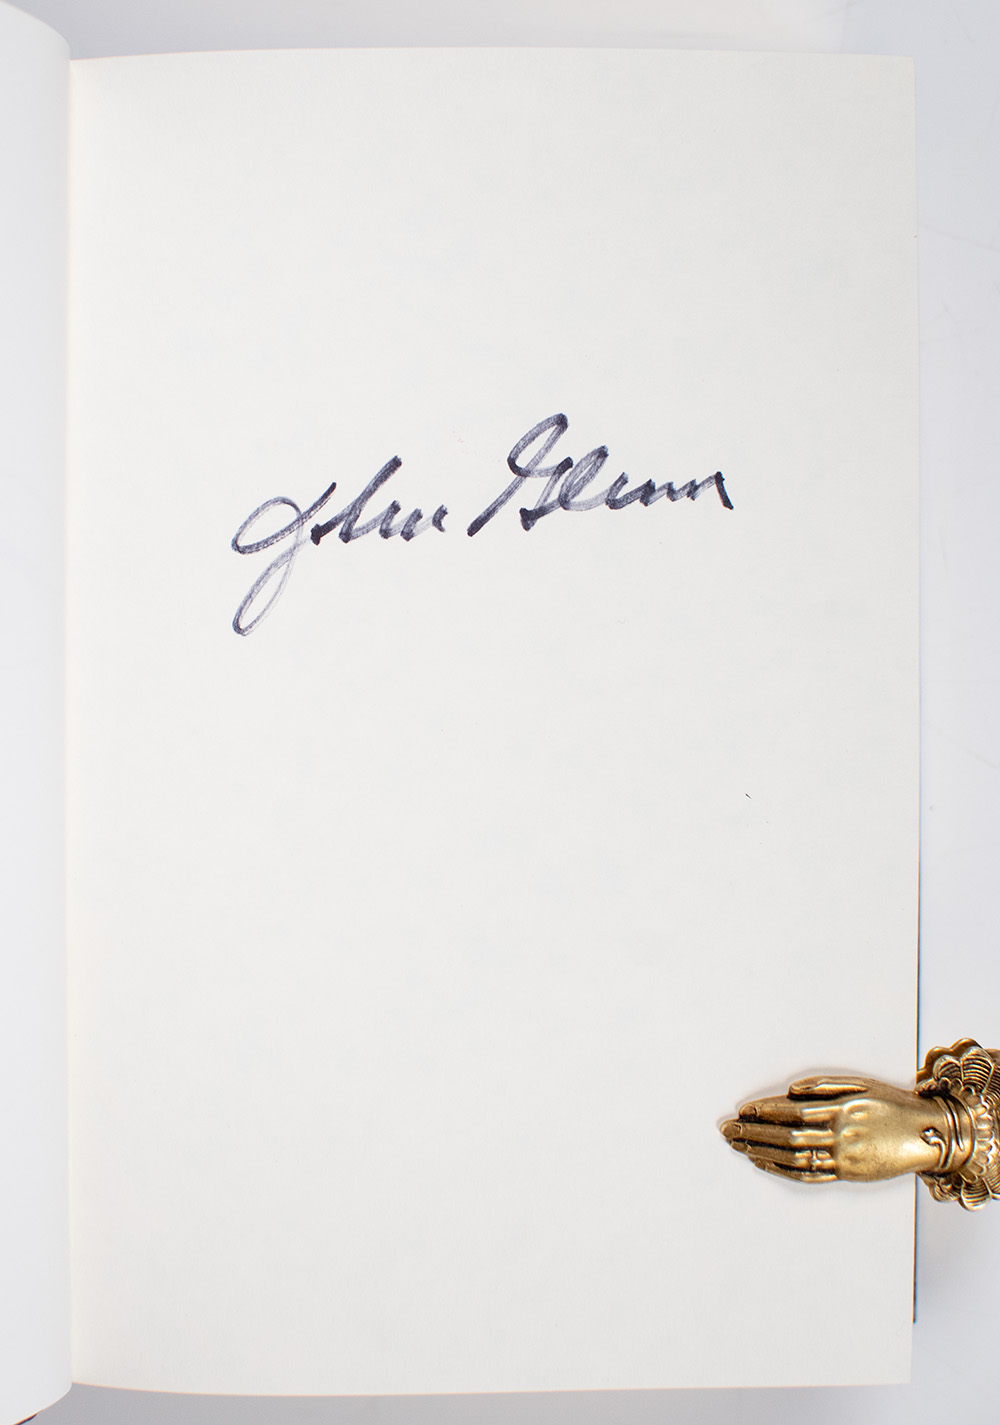 John Glenn